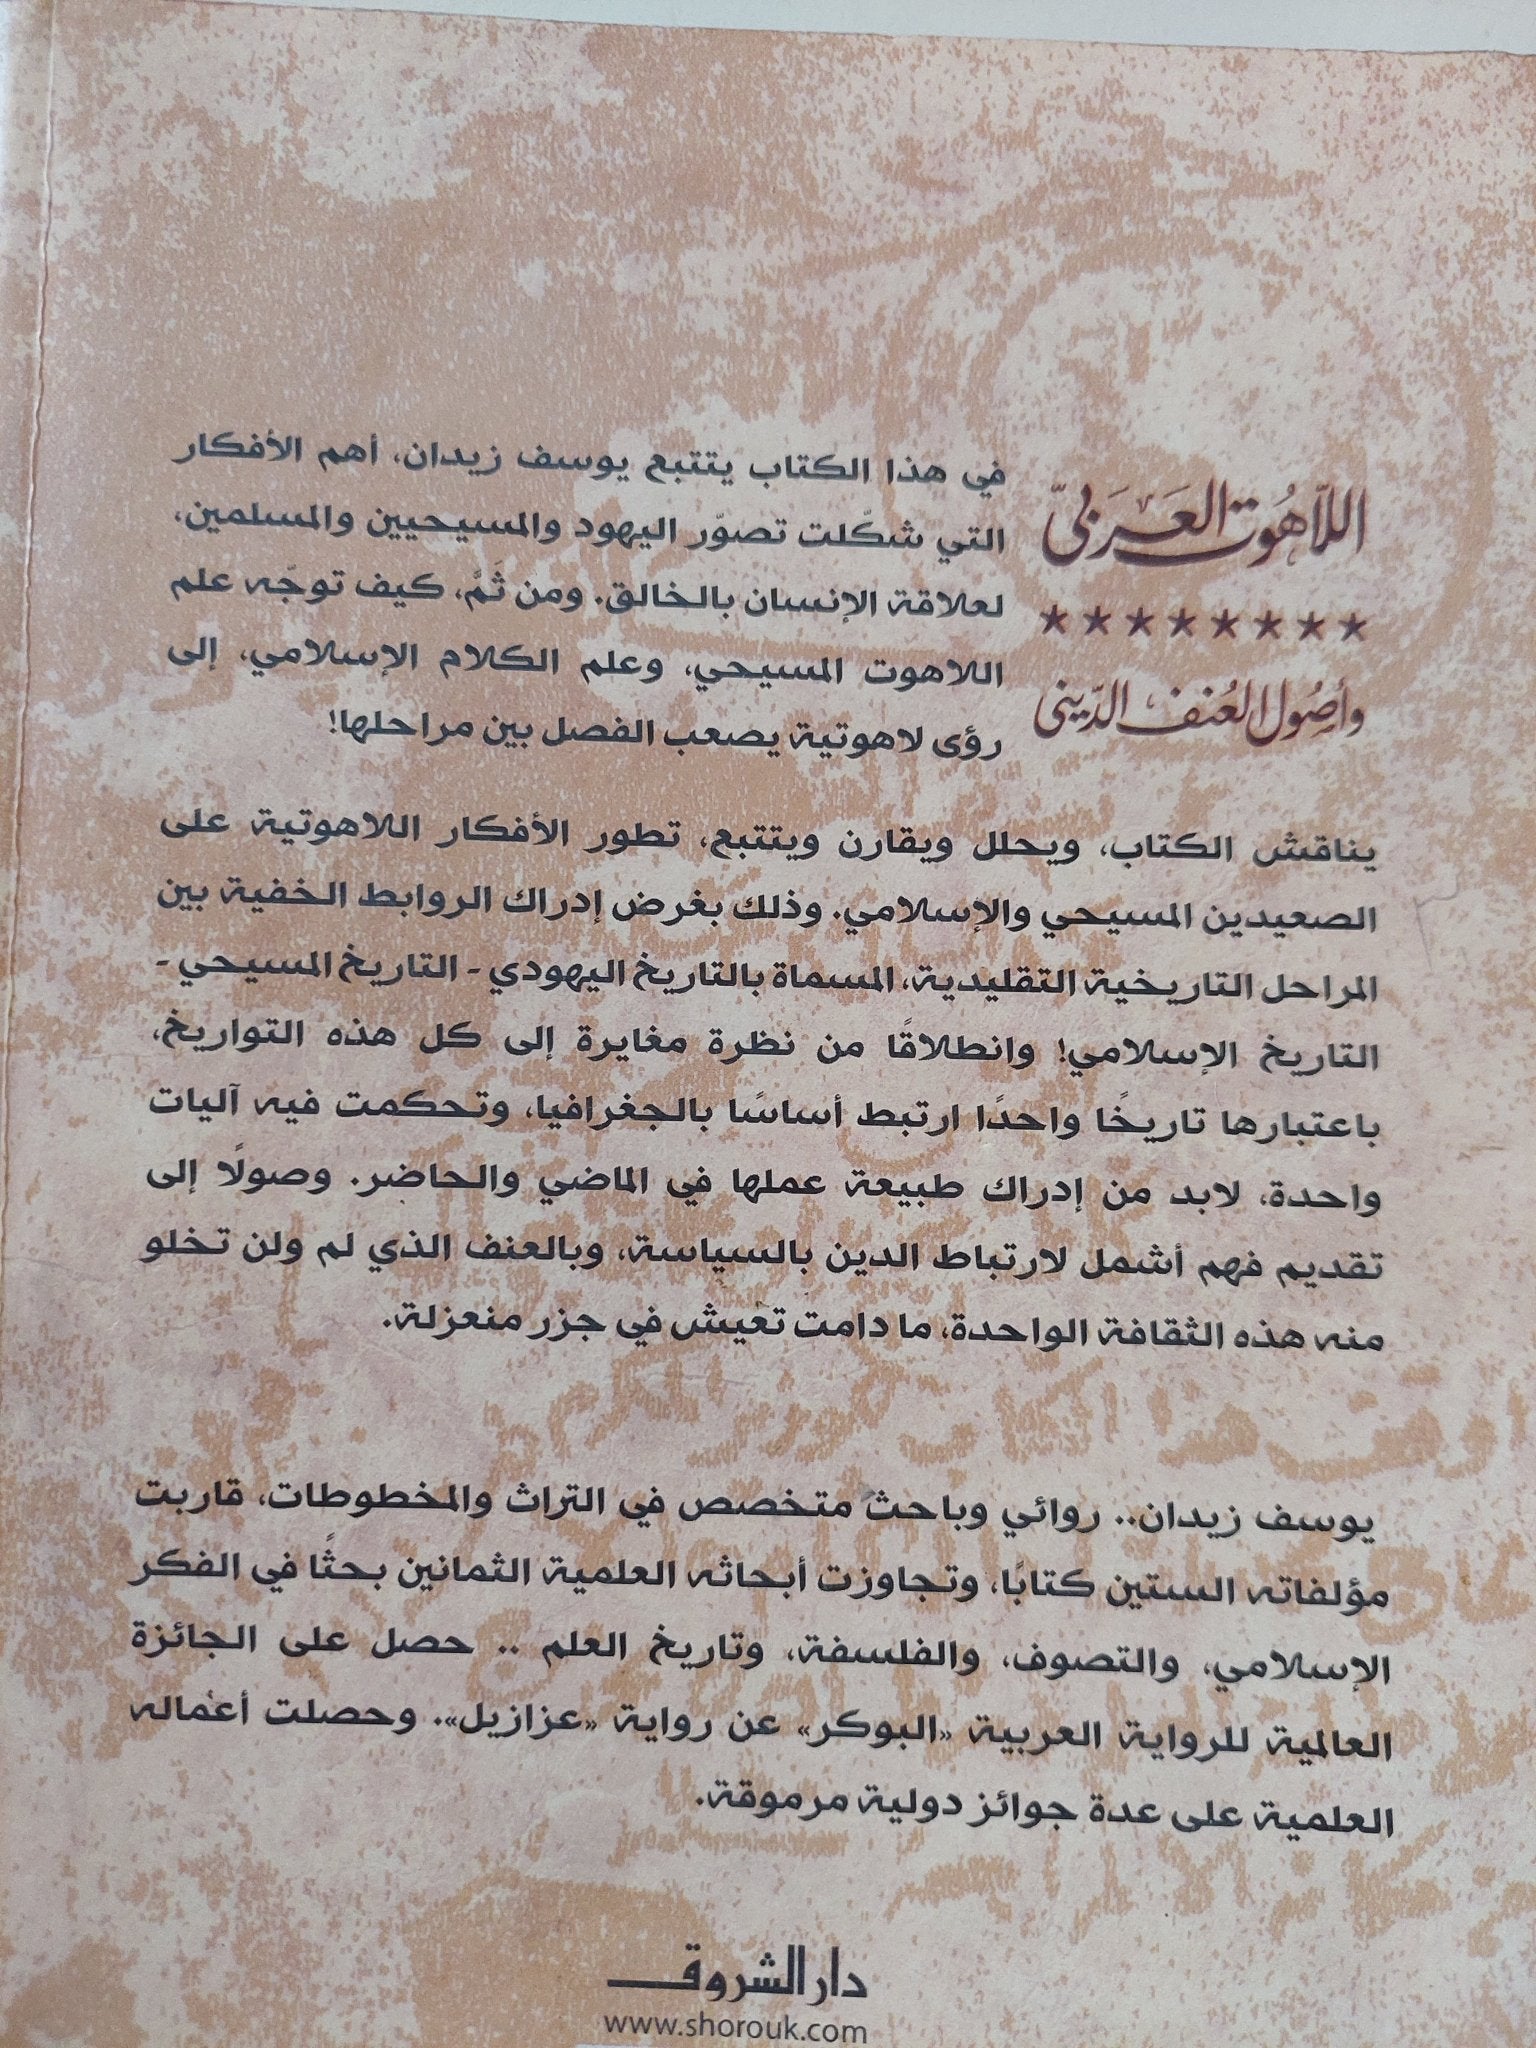 اللاهوت العَرَبىّ
★ ★ ★ ★ ★ ★ ★ ★
وأصُول العُنف الدّينى
في هذا الكتاب يتتبع يوسف زيدان، أهم الأفكار
التي شكّلت تصوّر اليهود والمسيحيين والمسلمين،
لعلاقة الإنسان بالخالق. ومن ثَمَّ، كيف توجّه علم
اللاهوت المسيحي، وعلم الكلام الإسلامي، إلى
رؤى لاهوتية يصعب الفصل بين مراحلها!
يناقش الكتاب، ويحلل ويقارن ويتتبع، تطور الأفكار اللاهوتية على
الصعيدين المسيحي والإسلامي. وذلك بغرض إدراك الروابط الخفية بين
المراحل التاريخية التقليدية، المسماة بالتاريخ اليهودي - التاريخ المسيحي -
التاريخ الإسلامي! وانطلاقًا من نظرة مغايرة إلى كل هذه التواريخ،
باعتبارها تاريخًا واحدًا ارتبط أساسًا بالجغرافيا، وتحكمت فيه آليات
واحدة، لابد من إدراك طبيعة عملها في الماضي والحاضر. وصولًا إلى
تقديم فهم أشمل لارتباط الدين بالسياسة، وبالعنف الذي لم ولن تخلو
منه هذه الثقافة الواحدة، ما دامت تعيش في جزر منعزلة.
يوسف زيدان.. روائي وباحث متخصص في التراث والمخطوطات، قاربت
مؤلفاته الستين كتابًا، وتجاوزت أبحاثه العلمية الثمانين بحثًا في الفكر
الإسلامي، والتصوف، والفلسفة، وتاريخ العلم .. حصل على الجائزة
العالمية للرواية العربية «البوكر» عن رواية «عزازيل». وحصلت أعماله
العلمية على عدة جوائز دولية مرموقة.
دار الشروق
www.shorouk.com